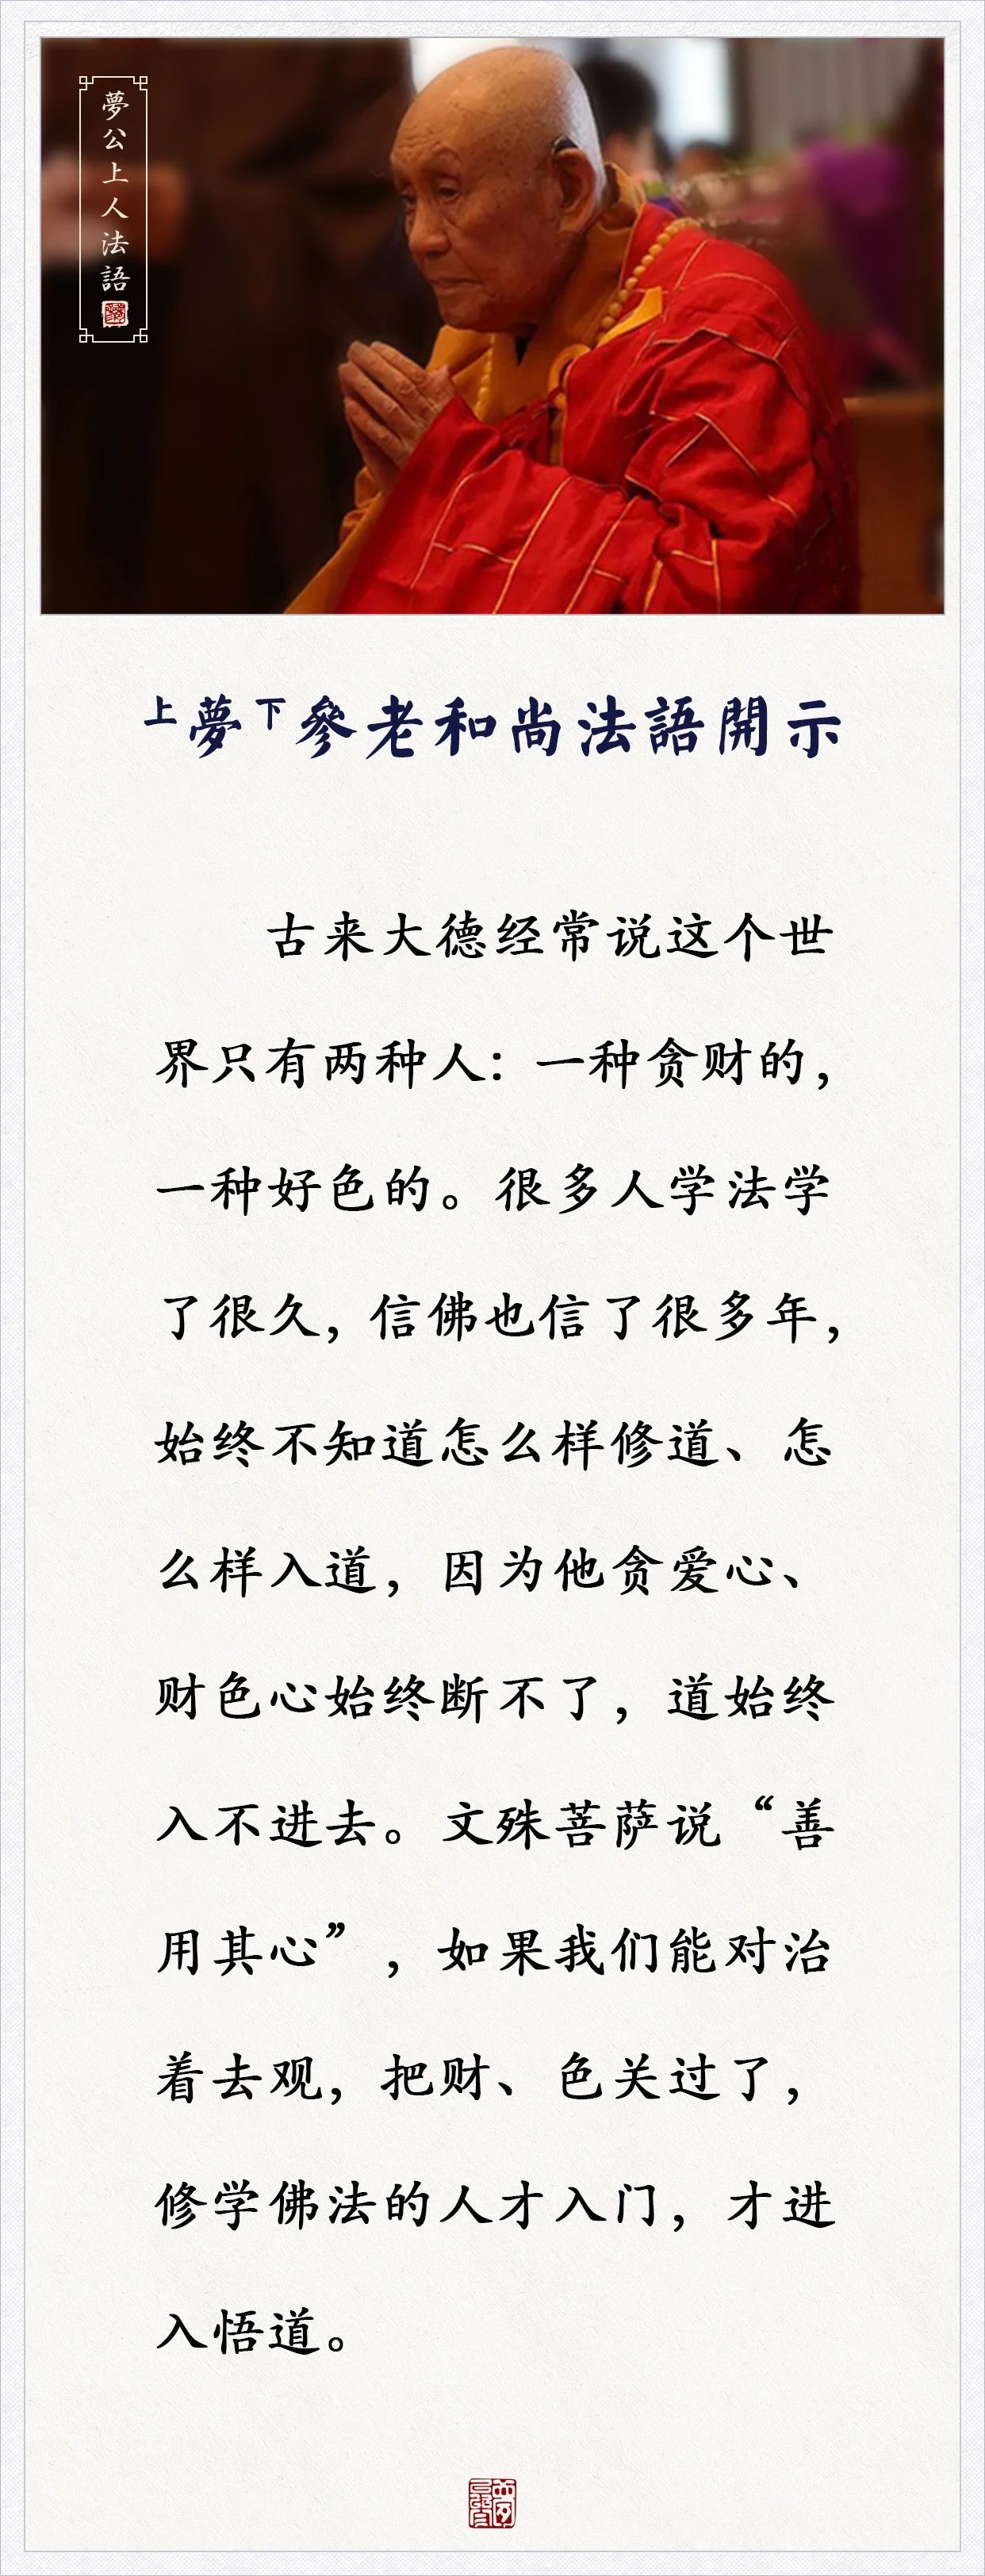 夢公上人法語
上夢下參老和尚法語開示
古来大德经常说这个世
界只有两种人：一种贪财的，
一种好色的。很多人学法学
了很久，信佛也信了很多年，
始终不知道怎么样修道、怎
么样入道，因为他贪爱心、
财色心始终断不了，道始终
入不进去。文殊菩萨说“善
用其心”，如果我们能对治
着去观，把财、色关过了，
修学佛法的人才入门，才进
入悟道。